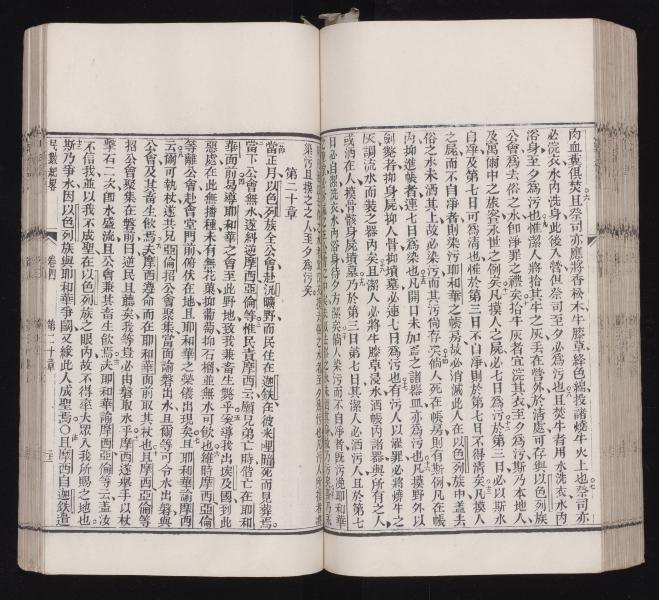 肉血糞俱焚且祭司亦應將香松木牛膝草絳色綿投諸燒牛火上也祭司亦
必浣衣水內洗身此後入營但祭司至夕必爲污也且焚牛者用水洗衣水內
浴身至夕爲污也惟潔人將拾其牛之灰丟在營外於清處可存與以色列族
公會爲去俗之水卽淨罪之禮矣拾牛灰者宜浣其衣至夕爲污斯乃本地人
及寓爾中之旅客永世之例矣凡摸人之屍必七日爲污於第三日必以斯水
自淨及第七日可爲清也惟於第三日不自淨則於第七日不得清矣凡摸人
之屍而不自淨者則染污耶和華之帳房故必消滅此人在以色列族中蓋去
俗之水未洒其上故必染污而其污尚存矣倘人死在帳房則有斯例凡在帳
內抑進帳者連七日爲染也凡開日未加蓋之諸器亦爲污也凡摸野外以
劍斃者抑身屍抑人骨抑墳墓必連七日爲污也有污人以灌罪必將燒牛之
灰調流水而裝之器內矣且潔人必將牛膝草浸水洒帳內諸器與所有之人
或洒在人摸骨骸身屍墳墓乃於第三日第七日其潔人必洒污人且於第七
日必自潔浣衣水內浴身待夕方潔矣倘人染污而不自淨者旣污浼耶和華
染污且摸之之人至夕爲污矣
第二十章
當正月以色列族全公會赴汛曠野而民住在迦鉄在彼米哩暗死而見葬焉
當下公會無水遂糾逆摩西亞倫等惟民責摩西云願兄弟亡時偕亡在耶和
華面前曷導耶和華之會至此野地致我兼畜生斃乎奚導我出埃及國到此
惡處在此無播種未有無花菓抑葡萄抑石榴並無水可飲也維時摩西亞倫
等離公會赴會堂門前俯伏在地且耶和華之榮儀出現矣且耶和華諭摩西
云爾可執杖遂共兄亞倫招公會聚集當面諭磐出水且爾等可令水出磐與
公會及其畜生飲焉夫摩西遵命而在耶和華面前取其杖也且摩西亞倫等
招公會聚集在磐前曰逆民且聽矣我等豈必由磐取水乎摩西遂舉手以杖
擊石二次卽水盛流且公會兼其畜生飲焉夫耶和華諭摩西亞倫等云蓋汝
不信我並以我不成聖在以色列族之眼內故不得率大眾入我所賜之地也
斯乃爭水因以色列族與耶和華爭鬪又緣此人成聖焉○且摩西自迦鉄遣
民數紀畧 卷四 第二十章